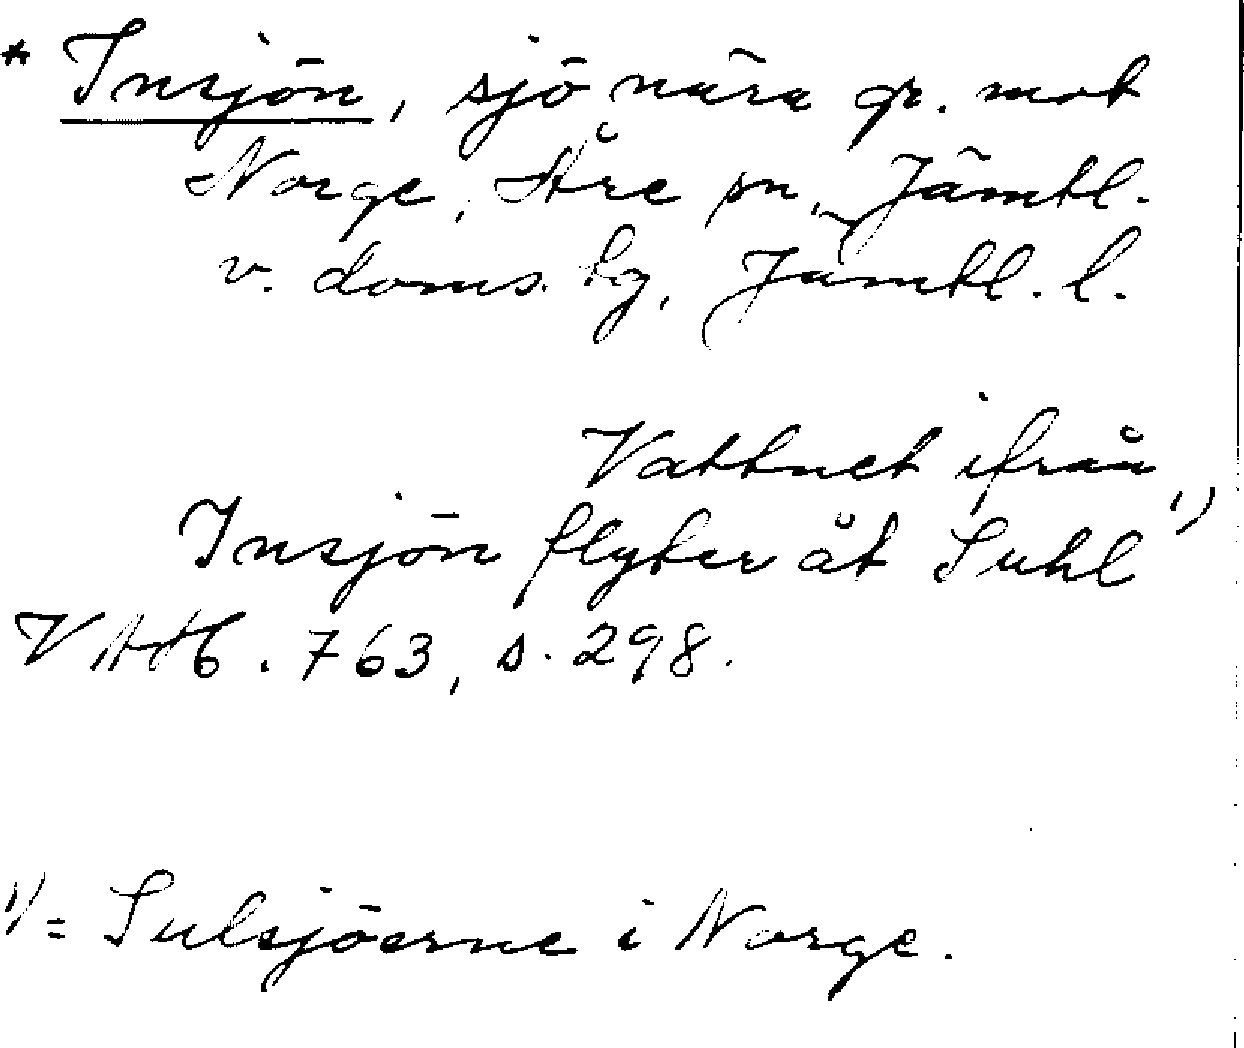 * Insjön, sjö nära gr. mot
Norge, Åre sn, Jämtl.
v. doms. hg, Jämtl. l.
Vattnet ifrån
Insjön flyter åt Suhl 1)
VAHb. 763, s. 298.
1) = Sulsjöerne i Norge.